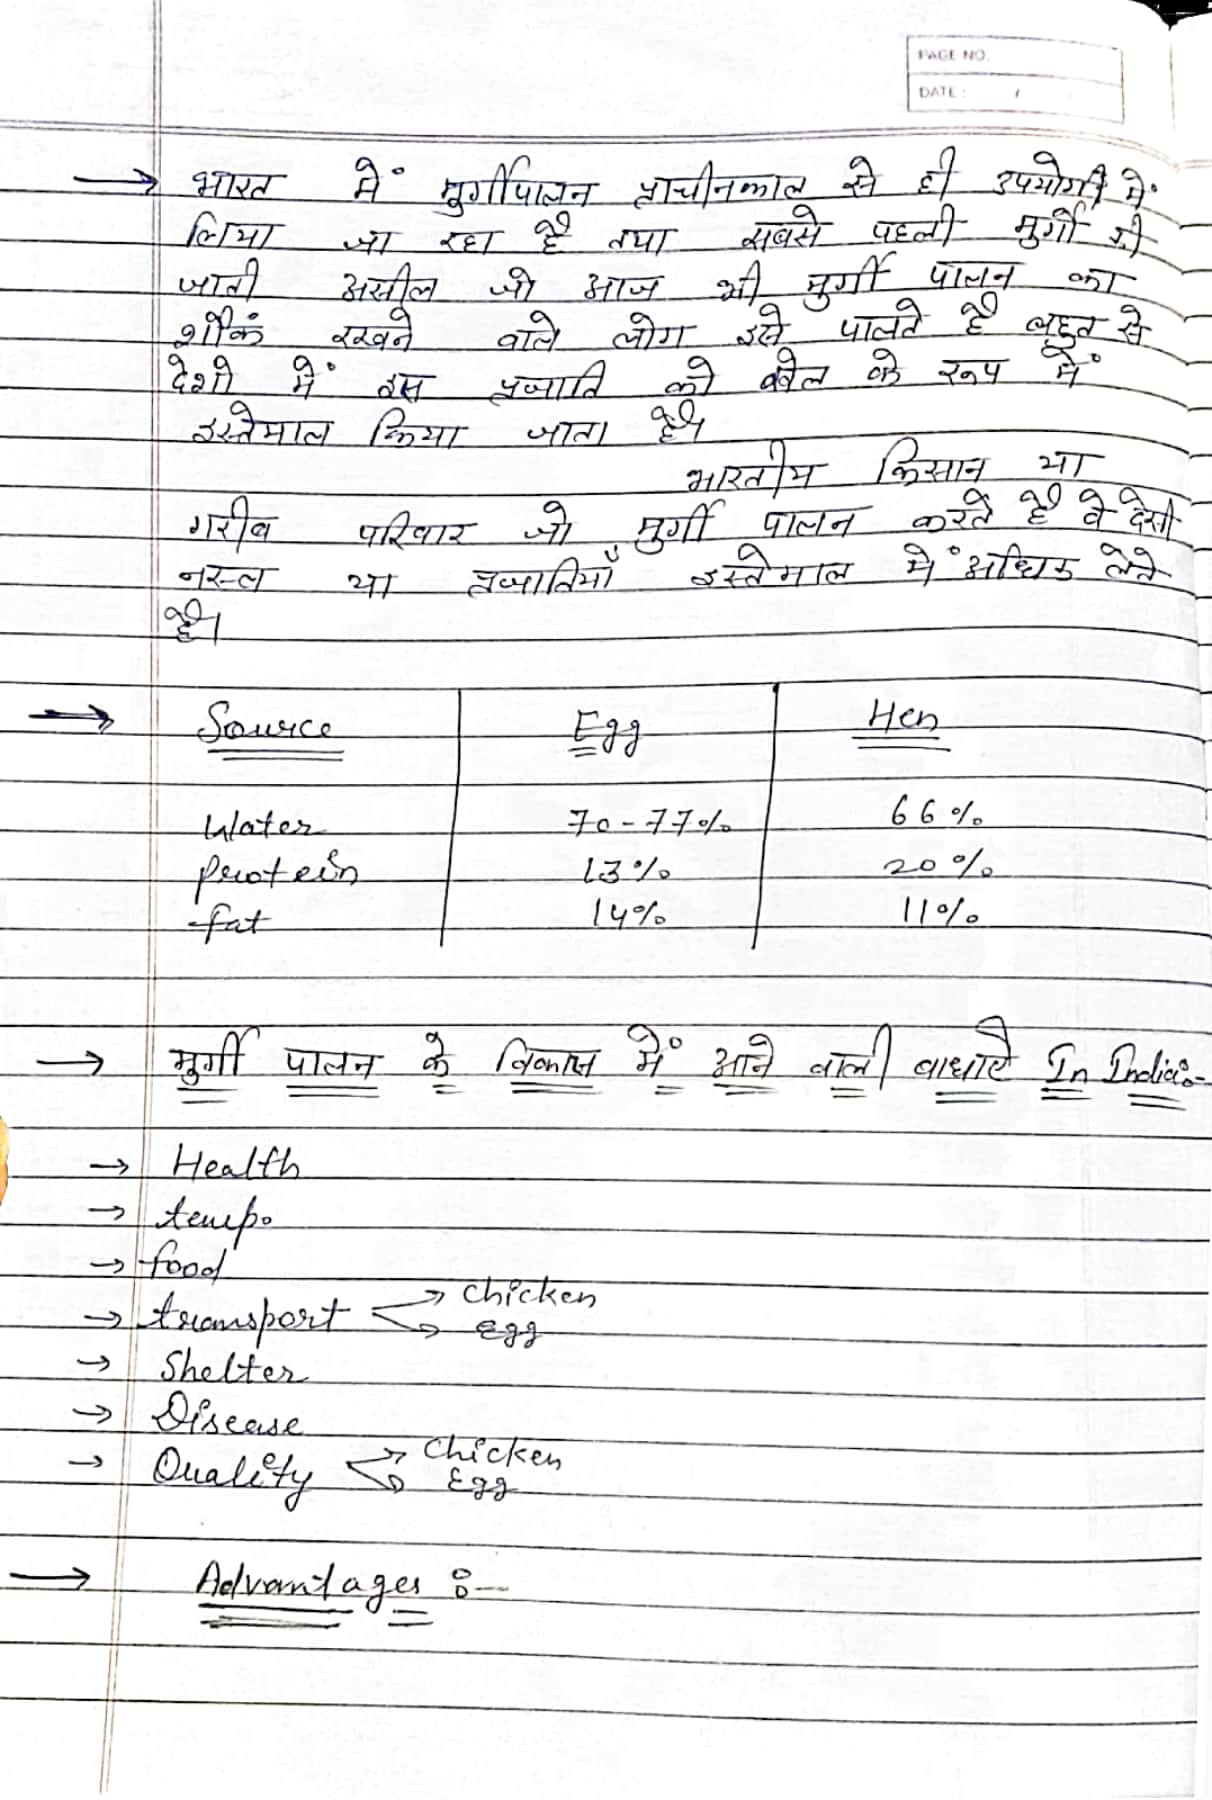 PAGE NO.
DATE : /
→ भारत में मुर्गीपालन प्राचीनकाल से ही उपयोगी में
लिया जा रहा है तथा सबसे पहली मुर्गी की
जाती असील जो आज भी मुर्गी पालन का
शौंक रखने वाले लोग इसे पालते है बहुत से
देशो में इस प्रजाति को खेल के रूप में
इस्तेमाल किया जाता है।
भारतीय किसान या
गरीब परिवार जो मुर्गी पालन करते है वे देसी
नस्ल या प्रजातियाँ इस्तेमाल में अधिक लेते
है।
→ Source Egg Hen
Water 70-77% 66%
protein 13% 20%
fat 14% 11%
→ मुर्गी पालन के विकास में आने वाली बाधाऐ In India:-
→ Health
→ temp.
→ food
→ transport → chicken
→ Egg
→ Shelter
→ Disease
→ Quality → chicken
→ Egg
→ Advantages :-